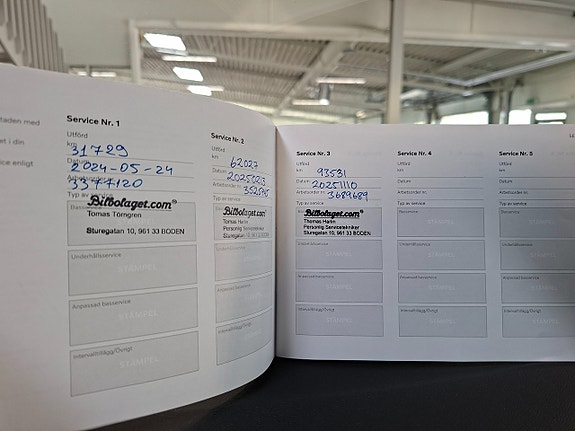 faden med
et i din
ice enligt
Service Nr. 1
Utförd
km
31729
Datum
2024-05-24
Arbetsorder nr.
3377120
Typ av service
Basservice
Bilbolaget.com®
Tomas Törngren
Sturegatan 10, 961 33 BODEN
Underhållsservice
STÄMPEL
Anpassad basservice
STÄMPEL
Intervalltillägg/Övrigt
STÄMPEL
Service Nr. 2
Utförd
km
62027
Datum
Arbetsorder nr.
Typ av service
Bilbolaget.com
Tomas Harin
Personlig Servicetekniker
Sturegatan 10, 961 33 BODEN
Underhållsservice
STÄMPEL
Anpassad basservice
STÄMPEL
Intervalltillägg/Övrigt
STÄMPEL
Service Nr. 3
Utförd
km
93531
Datum
20251110
Arbetsorder nr.
3689689
Typ av service
Bilbolaget.com®
Thomas Harin
Personlig Servicetekniker
Sturegatan 10, 961 33 BODEN
Underhållsservice
STÄMPEL
Anpassad basservice
STÄMPEL
Intervalltillägg/Övrigt
STÄMPEL
Service Nr. 4
Utförd
km
Datum
Arbetsorder nr.
Typ av service
Basservice
STÄMPEL
Underhållsservice
STÄMPEL
Anpassad basservice
STÄMPEL
Intervalltillägg/Övrigt
STÄMPEL
Service Nr. 5
Utförd
km
Datum
Arbetsorder nr.
Typ av service
Basservice
STÄMPEL
Underhållsservice
STÄMPEL
Anpassad basservice
STÄMPEL
Intervalltillägg/Övrigt
STÄMPEL